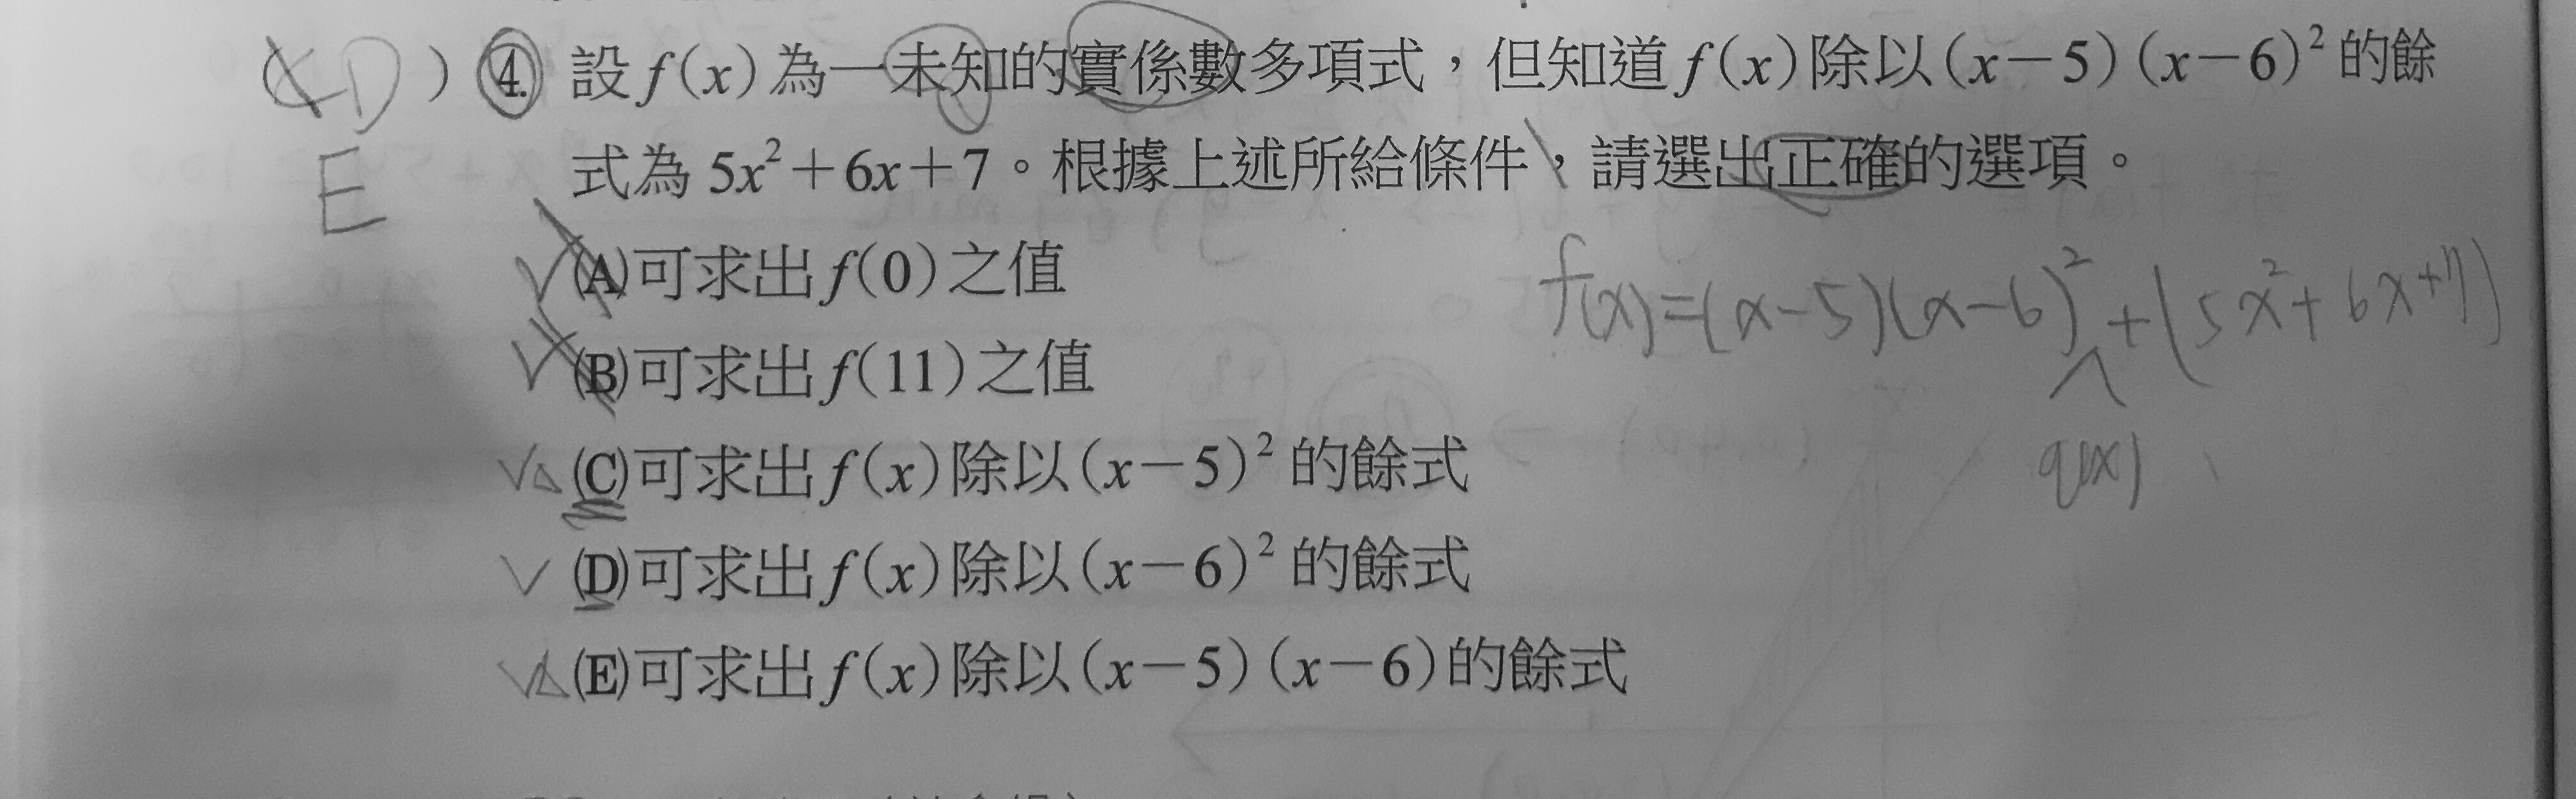 (C D) 4. 設 f(x) 為一未知的實係數多項式，但知道 f(x) 除以 (x－5)(x－6)² 的餘
E
式為 5x²＋6x＋7。根據上述所給條件，請選出正確的選項。
(A)可求出 f(0) 之值
f(x)=(x-5)(x-6)²+(5x²+6x+7)
q(x)
(B)可求出 f(11) 之值
(C)可求出 f(x) 除以 (x－5)² 的餘式
(D)可求出 f(x) 除以 (x－6)² 的餘式
(E)可求出 f(x) 除以 (x－5)(x－6) 的餘式